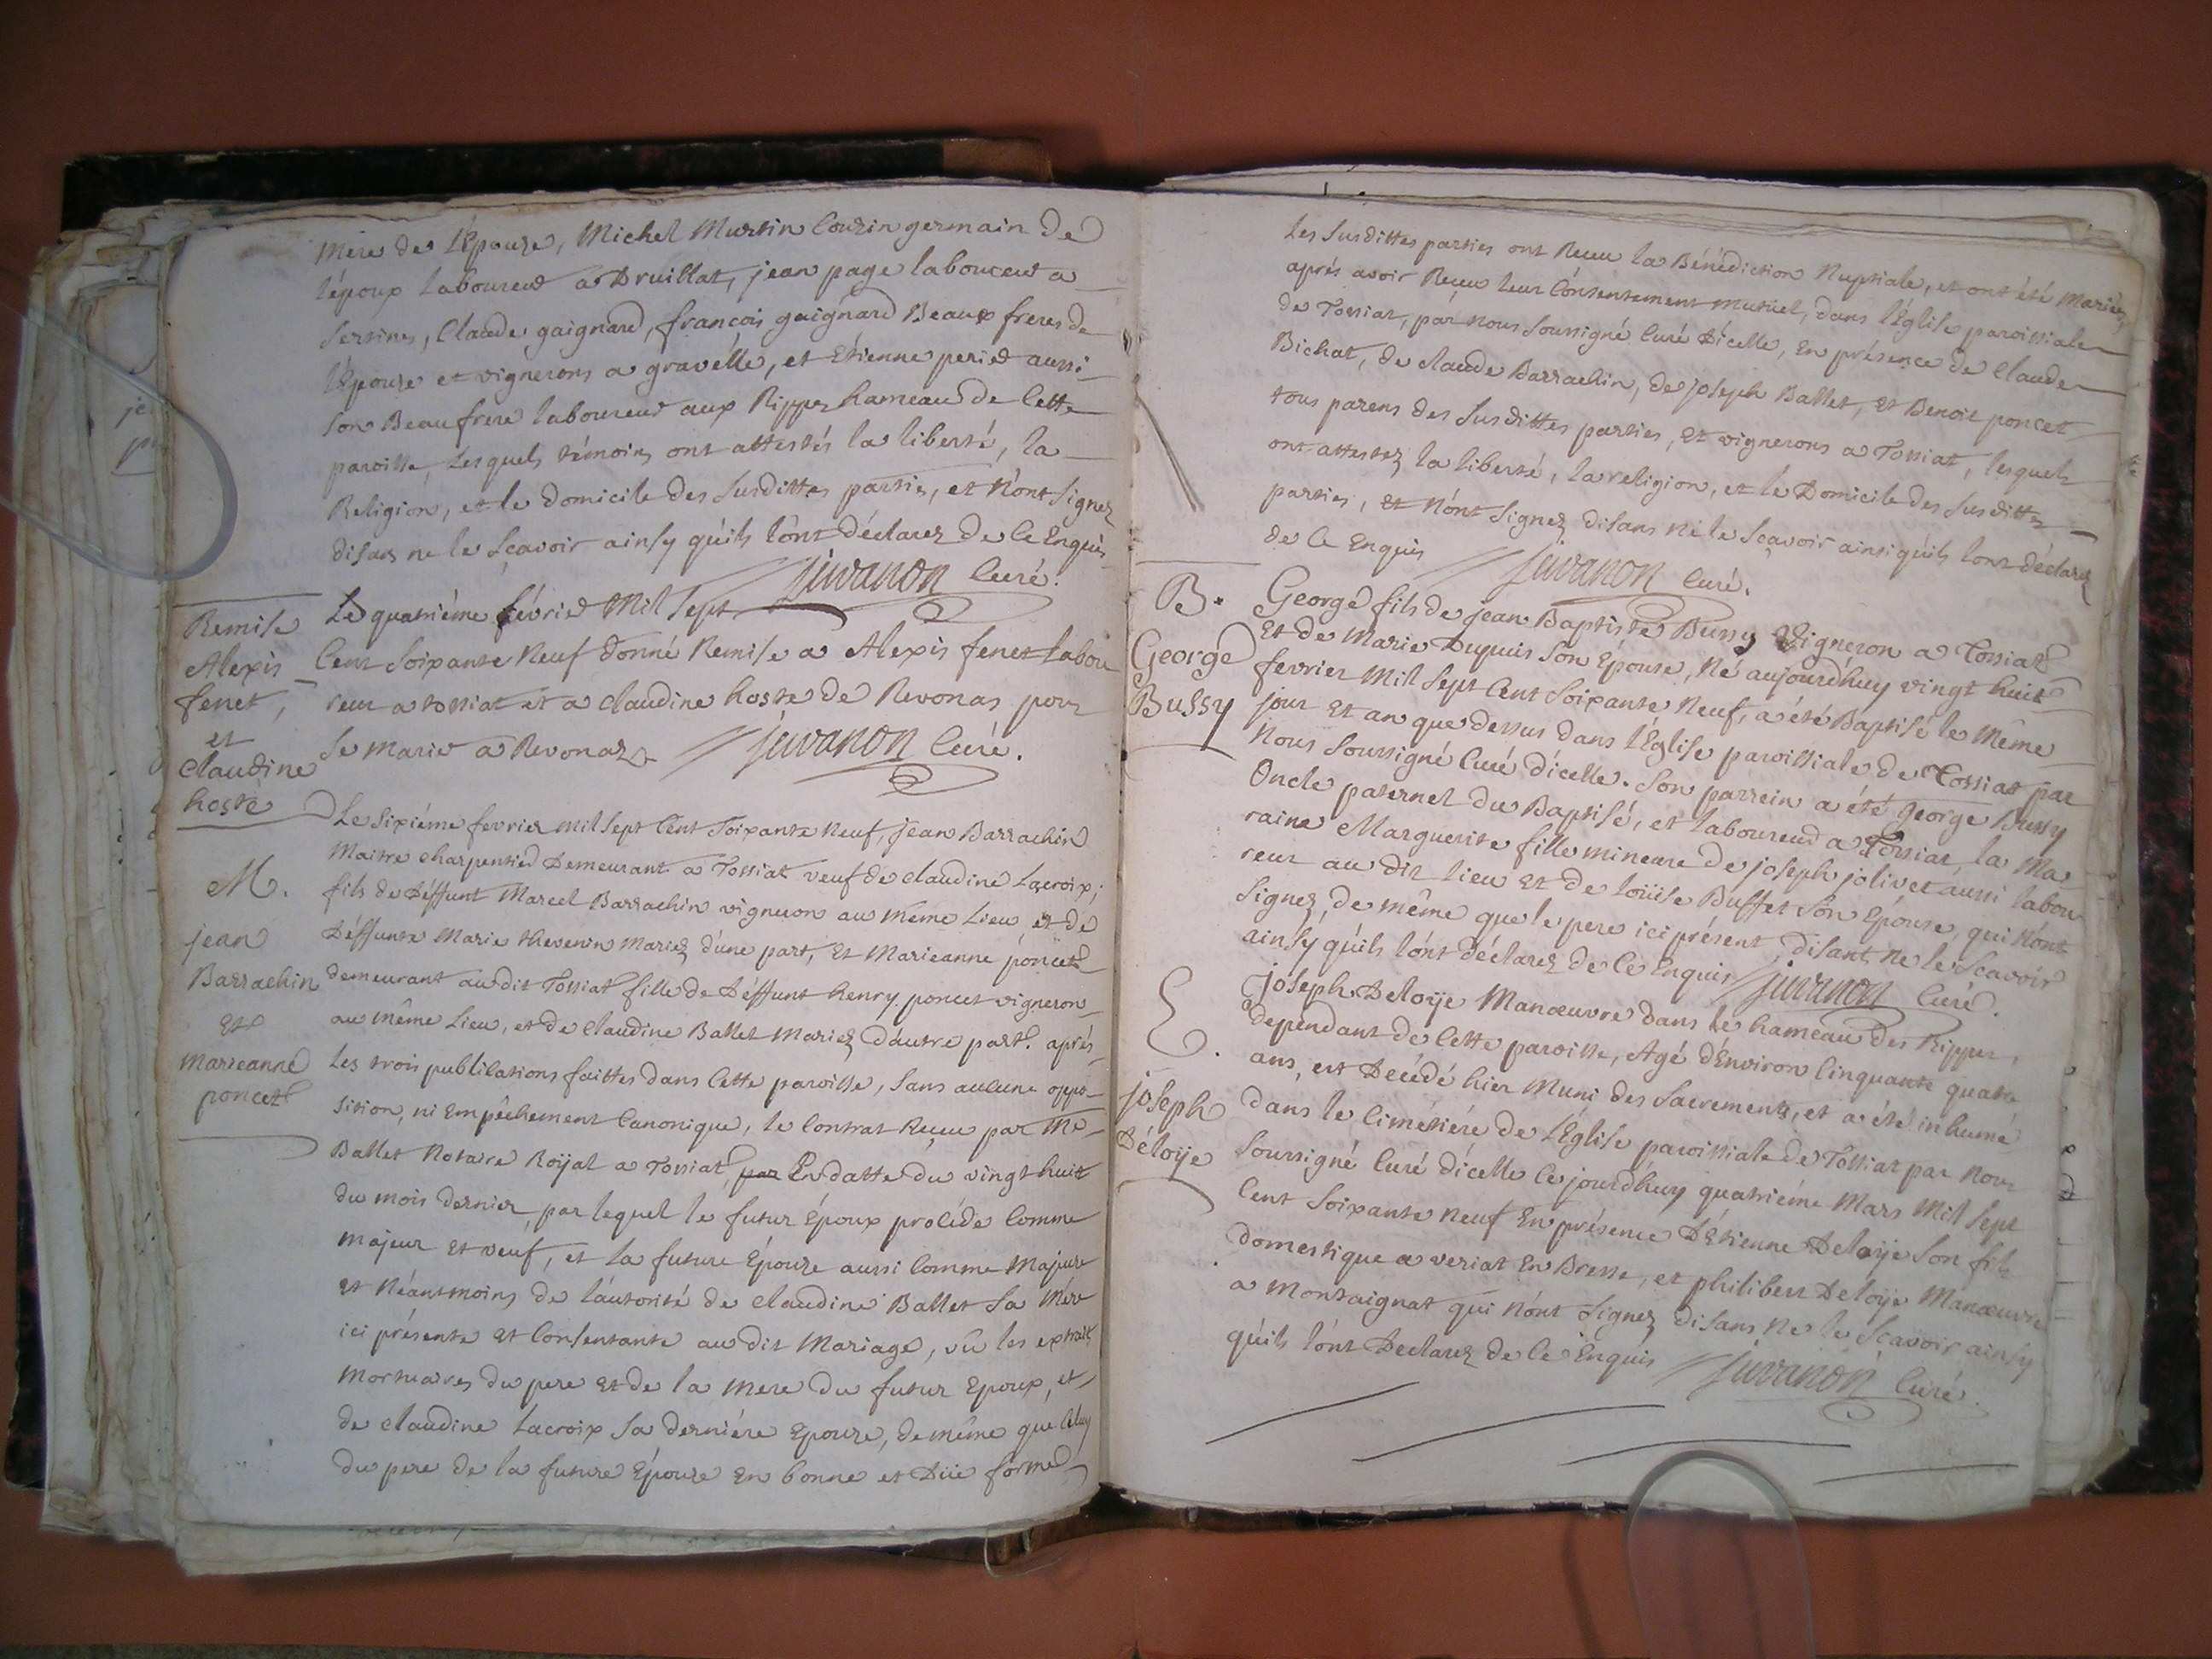 Mere de l'Epouze, Michel Murtin Couzin germain de
l'époux laboureur a Druillat, jean page laboureur a
Sertines, Claude gaignard, françois gaignard Beaux freres de
l'Epouze et vignerons a gravélle, et Etienne perier aussi
Son Beaufrere laboureur aux Rippes hameau de Cette
paroisse, Lesquels témoins ont attestés la liberté, la
Religion, et le domicile des Susdittes parties, et n'ont Signez
disans ne le Sçavoir ainsy qu'ils l'ont déclarez de Ce Enquis
juvanon Curé.
Remise
Alexis
fenet,
et
Claudine
hoste
Le quatriéme février Mil Sept
Cent Soixante Neuf donné Remise a Alexis fenet Labou
reur a tossiat et a claudine hoste de Revonas pour
Se marier a Revonaz juvanon Curé.
M.
jean
Barrachin
Et
marieanne
poncet
Le Sixiéme fevrier mil Sept Cent Soixante Neuf, jean Barrachin
Maitre charpentier Demeurant a Tossiat veuf de claudine Lacroix,
fils de Déffunt Marcel Barrachin vigneron au même Lieu et de
Déffunte Marie thevenin Mariez d'une part, Et Marieanne poncet
demeurant audit Tossiat fille de Déffunt henry poncet vigneron
au même Lieu, et de claudine Ballet Mariez d'autre part. aprés
Les trois publications faittes dans Cette paroisse, Sans aucune oppo-
Sition, ni Empêchement Canonique, le Contrat Reçeu par Me
Ballet Notaire Roijal a Tossiat, par En datte du vingt huit
du mois dernier, par lequel le futur Époux proléde Comme
majeur Et veuf, et la future Épouze aussi Comme Majeure
et Néantmoins de l'autorité de claudine Ballet Sa Mére
ici présente Et Consentante au dit Mariage, vû les extraits
Mortuaires du pere Et de la Mere du futur Epoux, et
de claudine Lacroix Sa derniére Epouze, de même que Celuy
du pere de la future Épouze En bonne et Düe forme
Les Susdittes parties ont Reçeu la Bénédiction Nuptiale, et ont été Mariées
aprés avoir Reçeu leur Consentement Mutüel, dans l'Eglise paroissiale
de Tossiat, par Nous Soussigné Curé D'icelle, En présence de Claude
Bichat, de claude Barrachin, de joseph Ballet, Et Benoit poncet
tous parens des Susdittes parties, Et vignerons a Tossiat, lesquels
ont attestez la liberté, la religion, et le Domicile des Susdittes
parties, et N'ont Signez disans Ne le Sçavoir ainsi qu'ils l'ont déclarez
de Ce Enquis juvanon Curé.
B.
George
Bussy
George fils de jean Baptiste Bussy Vigneron a Tossiat
Et de Marie Dupuis Son Epouse, Né aujourd'huy vingt huit
fevrier Mil Sept Cent Soixante Neuf, a été Baptisé le Même
jour Et an que dessus dans l'Église paroissiale de Tossiat par
Nous Soussigné Curé d'icelle. Son parrein a été George Bussy
Oncle paternel du Baptisé, et laboureur a Tossiat, la Ma
raine Marguerite fille mineure de joseph jolivet aussi labou
reur au dit lieu Et de loüise Buffet Son Epouse, qui N'ont
Signez, de même que le pere ici présent, disant Ne le Scavoir
ainsy qu'ils l'ont déclarez de Ce Enquis juvanon Curé.
E.
joseph
Déloije
joseph Deloije Manœuvre dans le hameau des Rippes,
dependant de Cette paroisse, Agé d'Environ Cinquante quatre
ans, est Decédé hier Muni des Sacrements, et a été inhumé
dans le Cimétiére de L'Eglise paroissiale de Tossiat par Nous
Soussigné Curé d'icelle Ce jourd'huy quatriéme Mars Mil Sept
Cent Soixante Neuf En présence D'Etienne Deloije Son fils
domestique a veriat En Bresse, et philibert Deloije Manœuvre
a Montaignat qui N'ont Signez disans Ne le Sçavoir ainsy
qu'ils l'ont Declarez de Ce Enquis juvanon Curé.